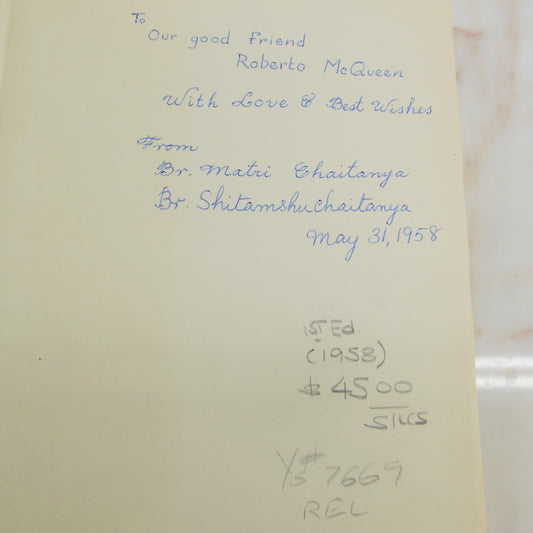 To
Our good friend
Roberto McQueen
With Love & Best Wishes
From
Br. Matri Chaitanya
Br. Shitamshu Chaitanya
May 31, 1958
1ST Ed.
(1958)
$ 4500
# 7669
REL